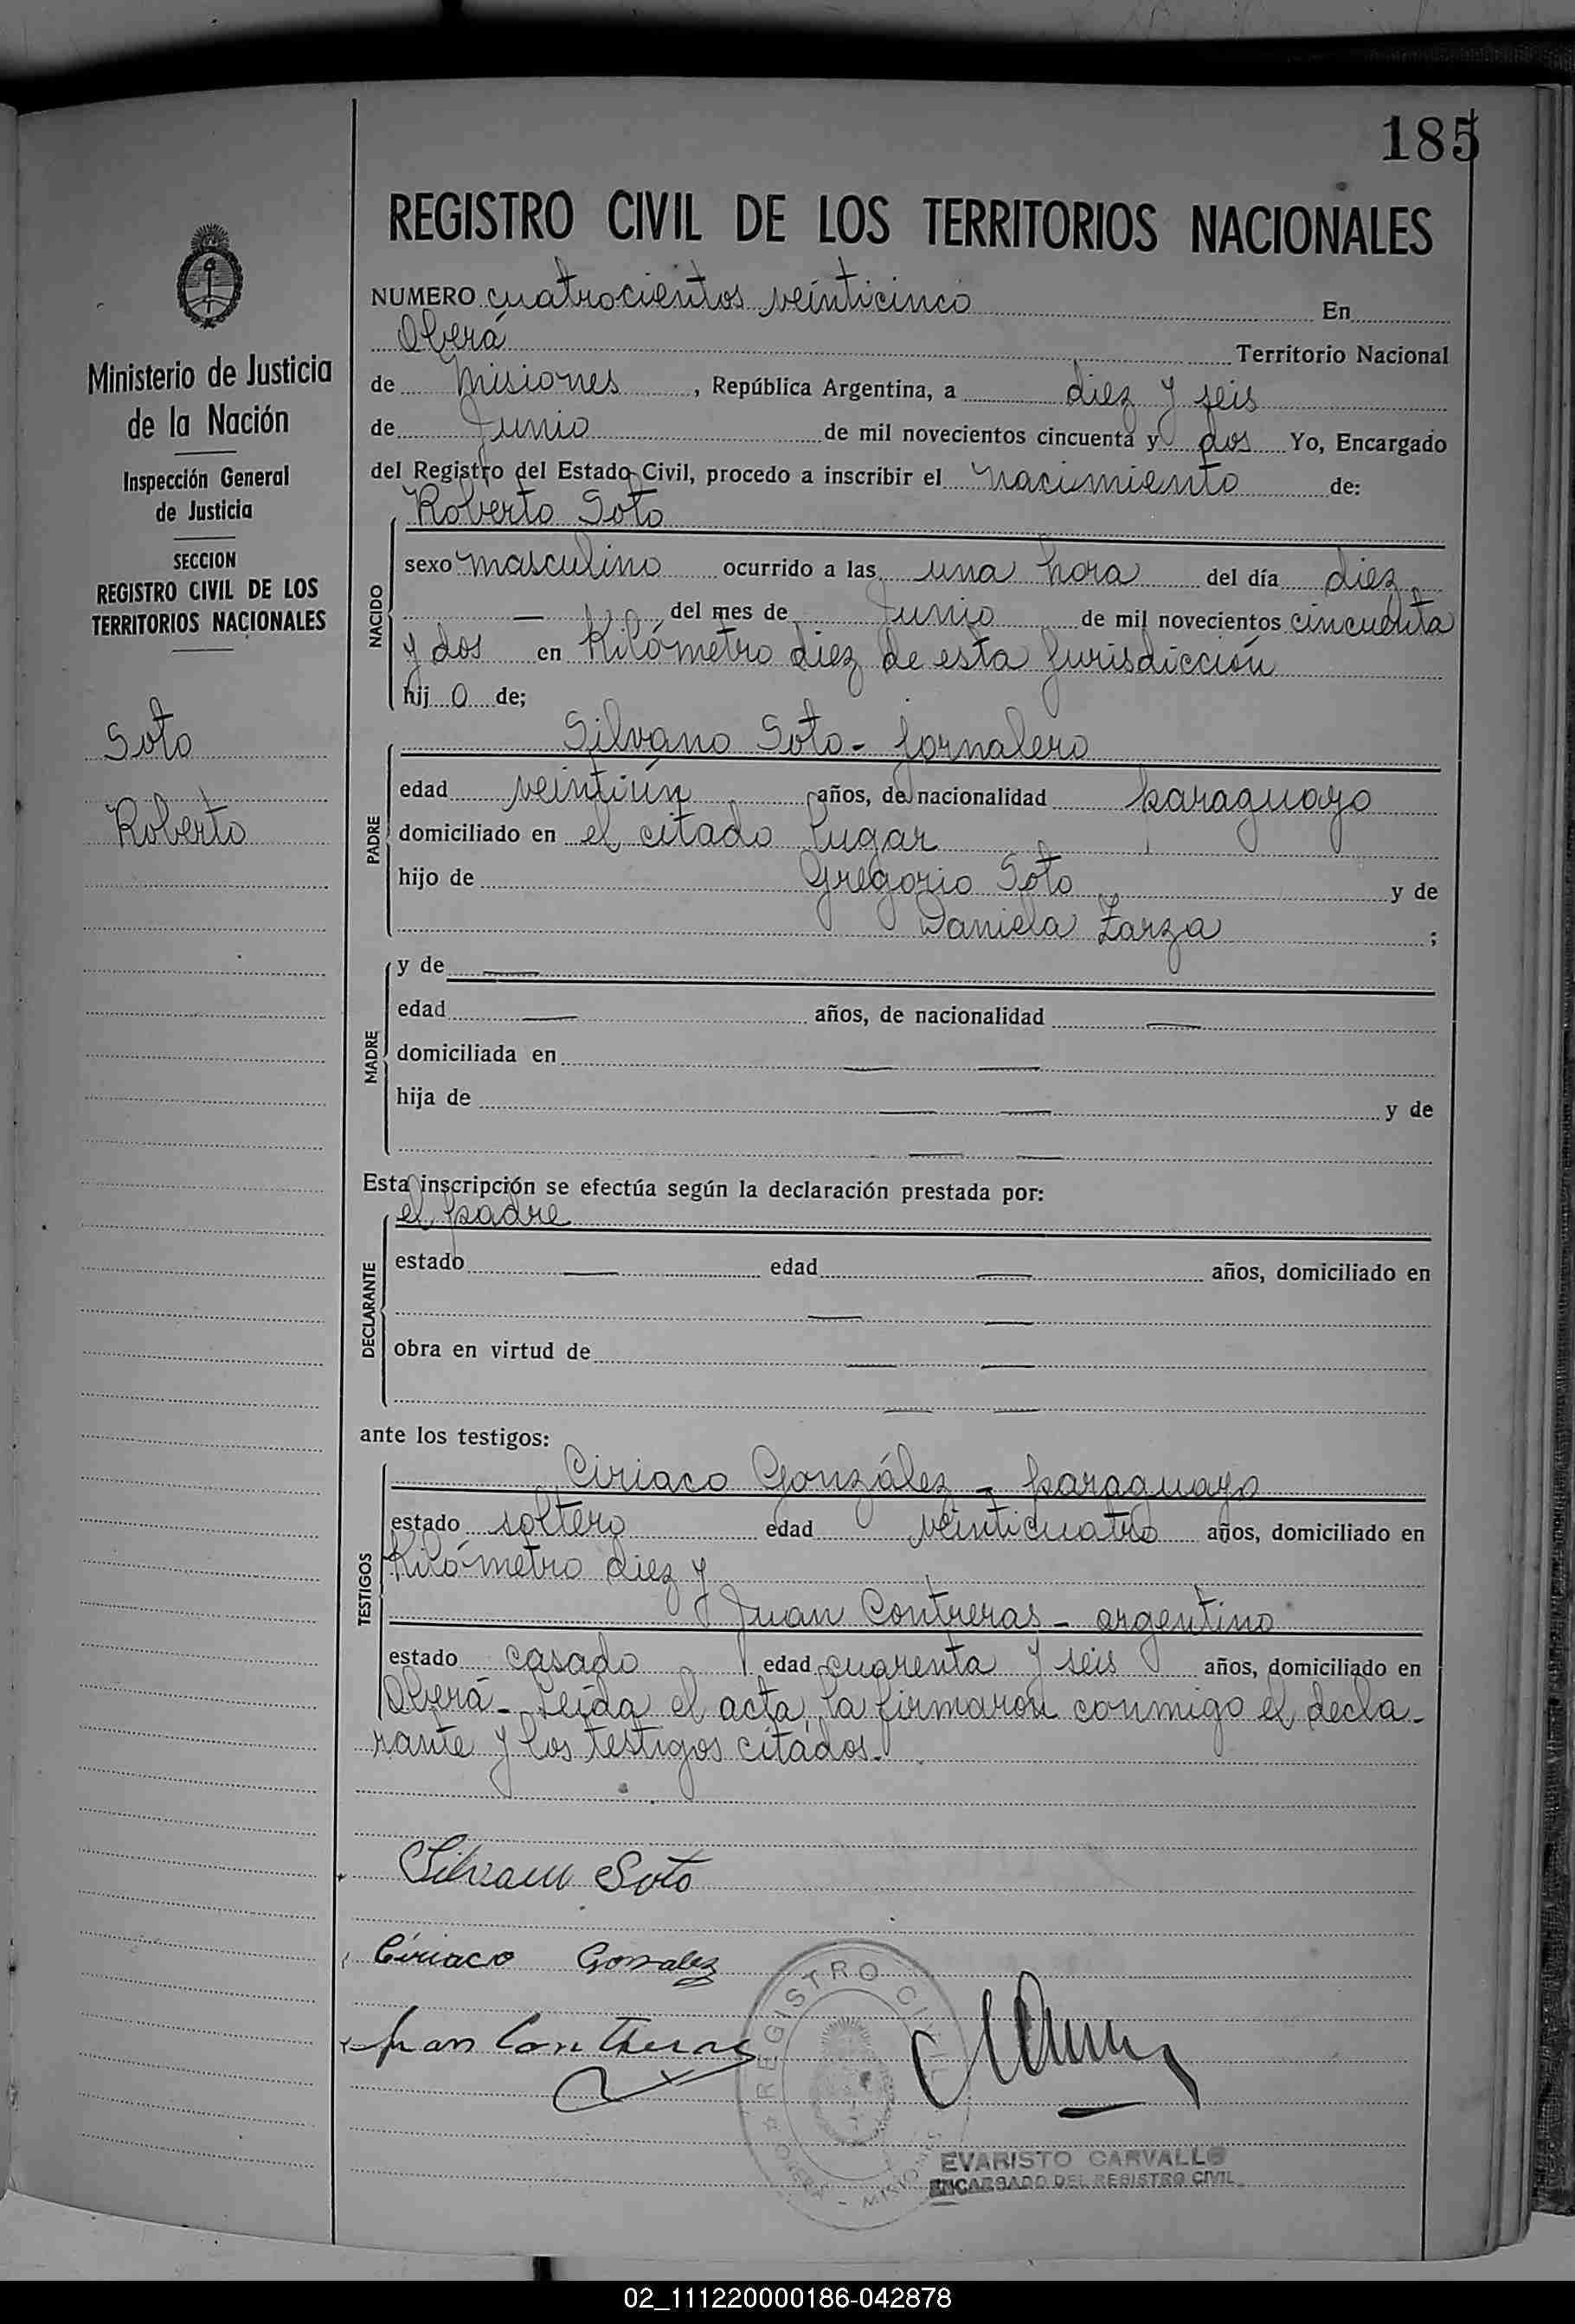 185
REGISTRO CIVIL DE LOS TERRITORIOS NACIONALES
Ministerio de Justicia
de la Nación
Inspección General
de Justicia
SECCION
REGISTRO CIVIL DE LOS
TERRITORIOS NACIONALES
Soto
Roberto
NUMERO cuatrocientos veinticinco En
Oberá Territorio Nacional
de Misiones, República Argentina, a diez y seis
de Junio de mil novecientos cincuenta y dos Yo, Encargado
del Registro del Estado Civil, procedo a inscribir el nacimiento de:
NACIDO
Roberto Soto
sexo masculino ocurrido a las una hora del día diez
— del mes de Junio de mil novecientos cincuenta
y dos en Kilómetro diez de esta jurisdicción
hij o de;
PADRE
Silvano Soto - jornalero
edad veintiún años, de nacionalidad paraguayo
domiciliado en el citado lugar
hijo de Gregorio Soto y de
Daniela Zarza ;
MADRE
y de —
edad — años, de nacionalidad —
domiciliada en — —
hija de — — y de
— —
Esta inscripción se efectúa según la declaración prestada por:
DECLARANTE
el padre
estado — edad — años, domiciliado en
— —
obra en virtud de — —
— —
ante los testigos:
TESTIGOS
Ciriaco González - paraguayo
estado soltero edad veinticuatro años, domiciliado en
Kilómetro diez y
Juan Contreras - argentino
estado casado edad cuarenta y seis años, domiciliado en
Oberá - Leída el acta, la firmaron conmigo el decla-
rante y los testigos citados.
Silvano Soto
Ciriaco Gonzalez
Juan Contreras
REGISTRO CIVIL
OBERA - MISIONES
EVARISTO CARVALLO
ENCARGADO DEL REGISTRO CIVIL
02_111220000186-042878